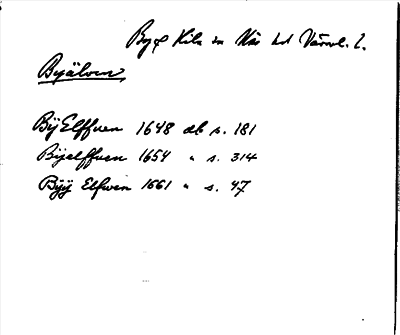 By o Kila sn Näs hd Värml. l.
Byälven
BijElffuen 1648 db s. 181
Bijelffuen 1654 " s. 314
Bÿÿ Elfwen 1661 " s. 47